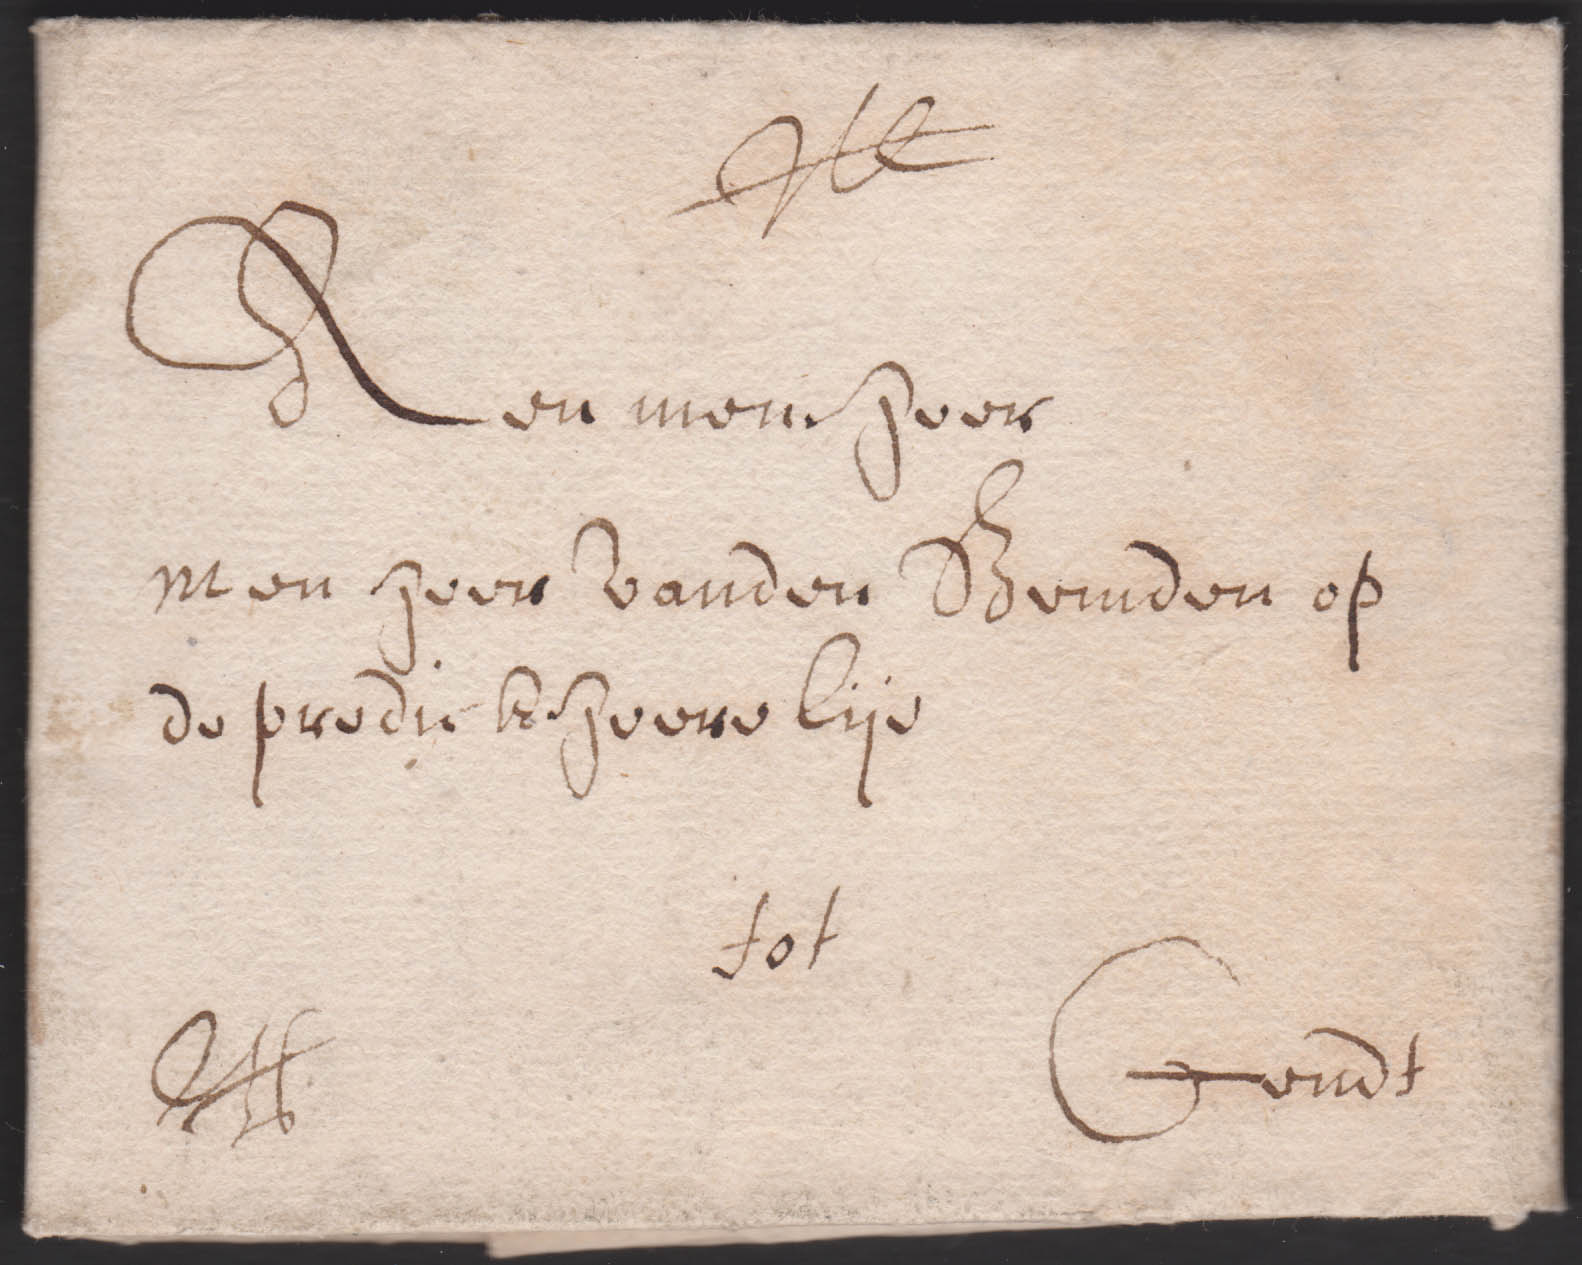 Aen men heer
Men heer vanden Bemden op
de predickheere lije
tot
Gendt